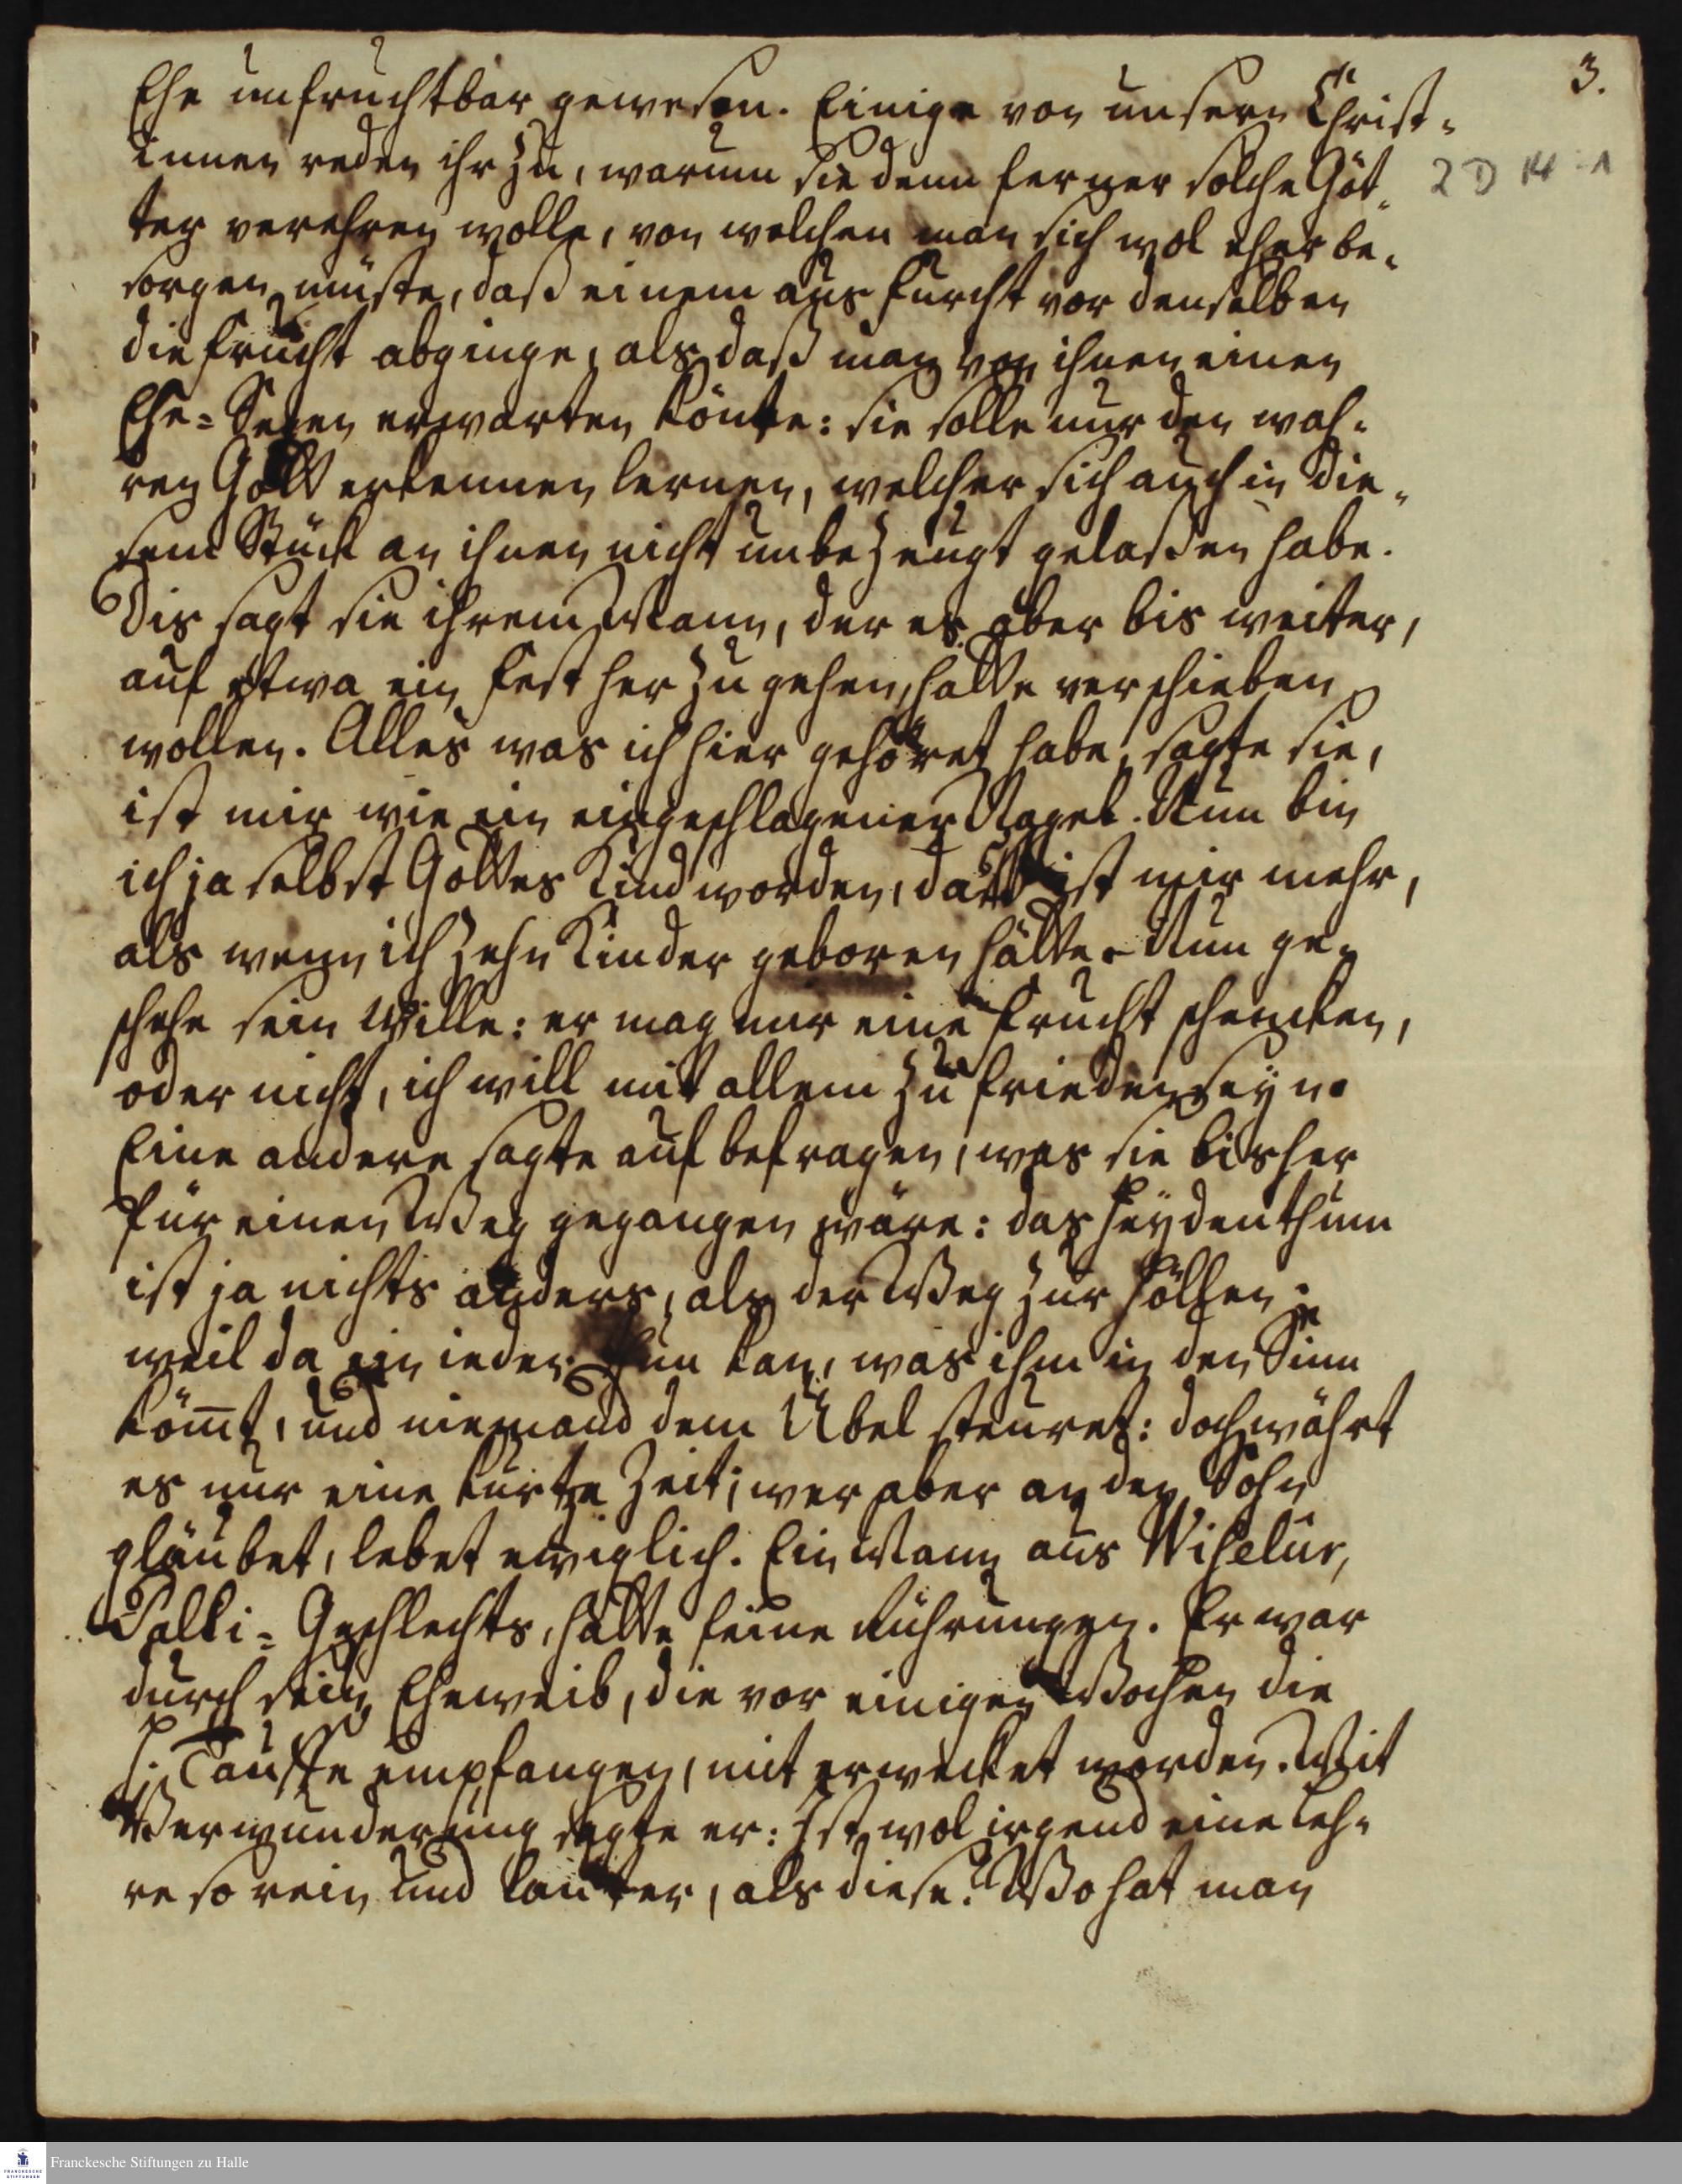 3.
Ehe unfruchtbar gewesen. Einige von unsern Christ-
innen reden ihr zu, warum sie denn ferner solche Göt-
2 D 14 - 1
ter verehren wolle, von welchen man sich wol eher be-
sorgen müste, daß einem aus Furcht vor denselben
die Frucht abginge, als daß man von ihnen einen
Ehe-Segen erwarten könte: sie solle nur den wah-
ren Gott erkennen lernen, welcher sich auch in die-
sem Stück an ihnen nicht unbezeugt gelaßen habe.
Dis sagt sie ihrem Mann, der es aber bis weiter,
auf etwa ein Fest her zu gehen, hatte verschieben
wollen. Alles was ich hier gehöret habe, sagte sie,
ist mir wie ein eingeschlagener Nagel. Nun bin
ich ja selbst Gottes Kind worden, das ist mir mehr,
als wenn ich zehn Kinder geboren hätte. Nun ge-
schehe sein Wille: er mag mir eine Frucht schencken,
oder nicht, ich will mit allem zufrieden seyn.
Eine andere sagte auf befragen, was sie bisher
für einen Weg gegangen wäre: das Heydenthum
ist ja nichts anders, als der Weg zur Höllen;
weil da ein ieder thun kan, was ihm in den Sinn
kömt, und niemand dem Übel steuret: doch währt
es nur eine kurtze Zeit; wer aber an den Sohn
gläubet, lebet ewiglich. Ein Mann aus Wiselur,
Palli-Geschlechts, hatte feine Rührungen. Er war
durch sein Eheweib, die vor einigen Wochen die
H. Tauffe empfangen, mit erwecket worden. Mit
Verwunderung sagte er: Ist wol irgend eine Leh-
re so rein und lauter, als diese? Wo hat man
Franckesche Stiftungen zu Halle
FRANCKESCHE STIFTUNGEN